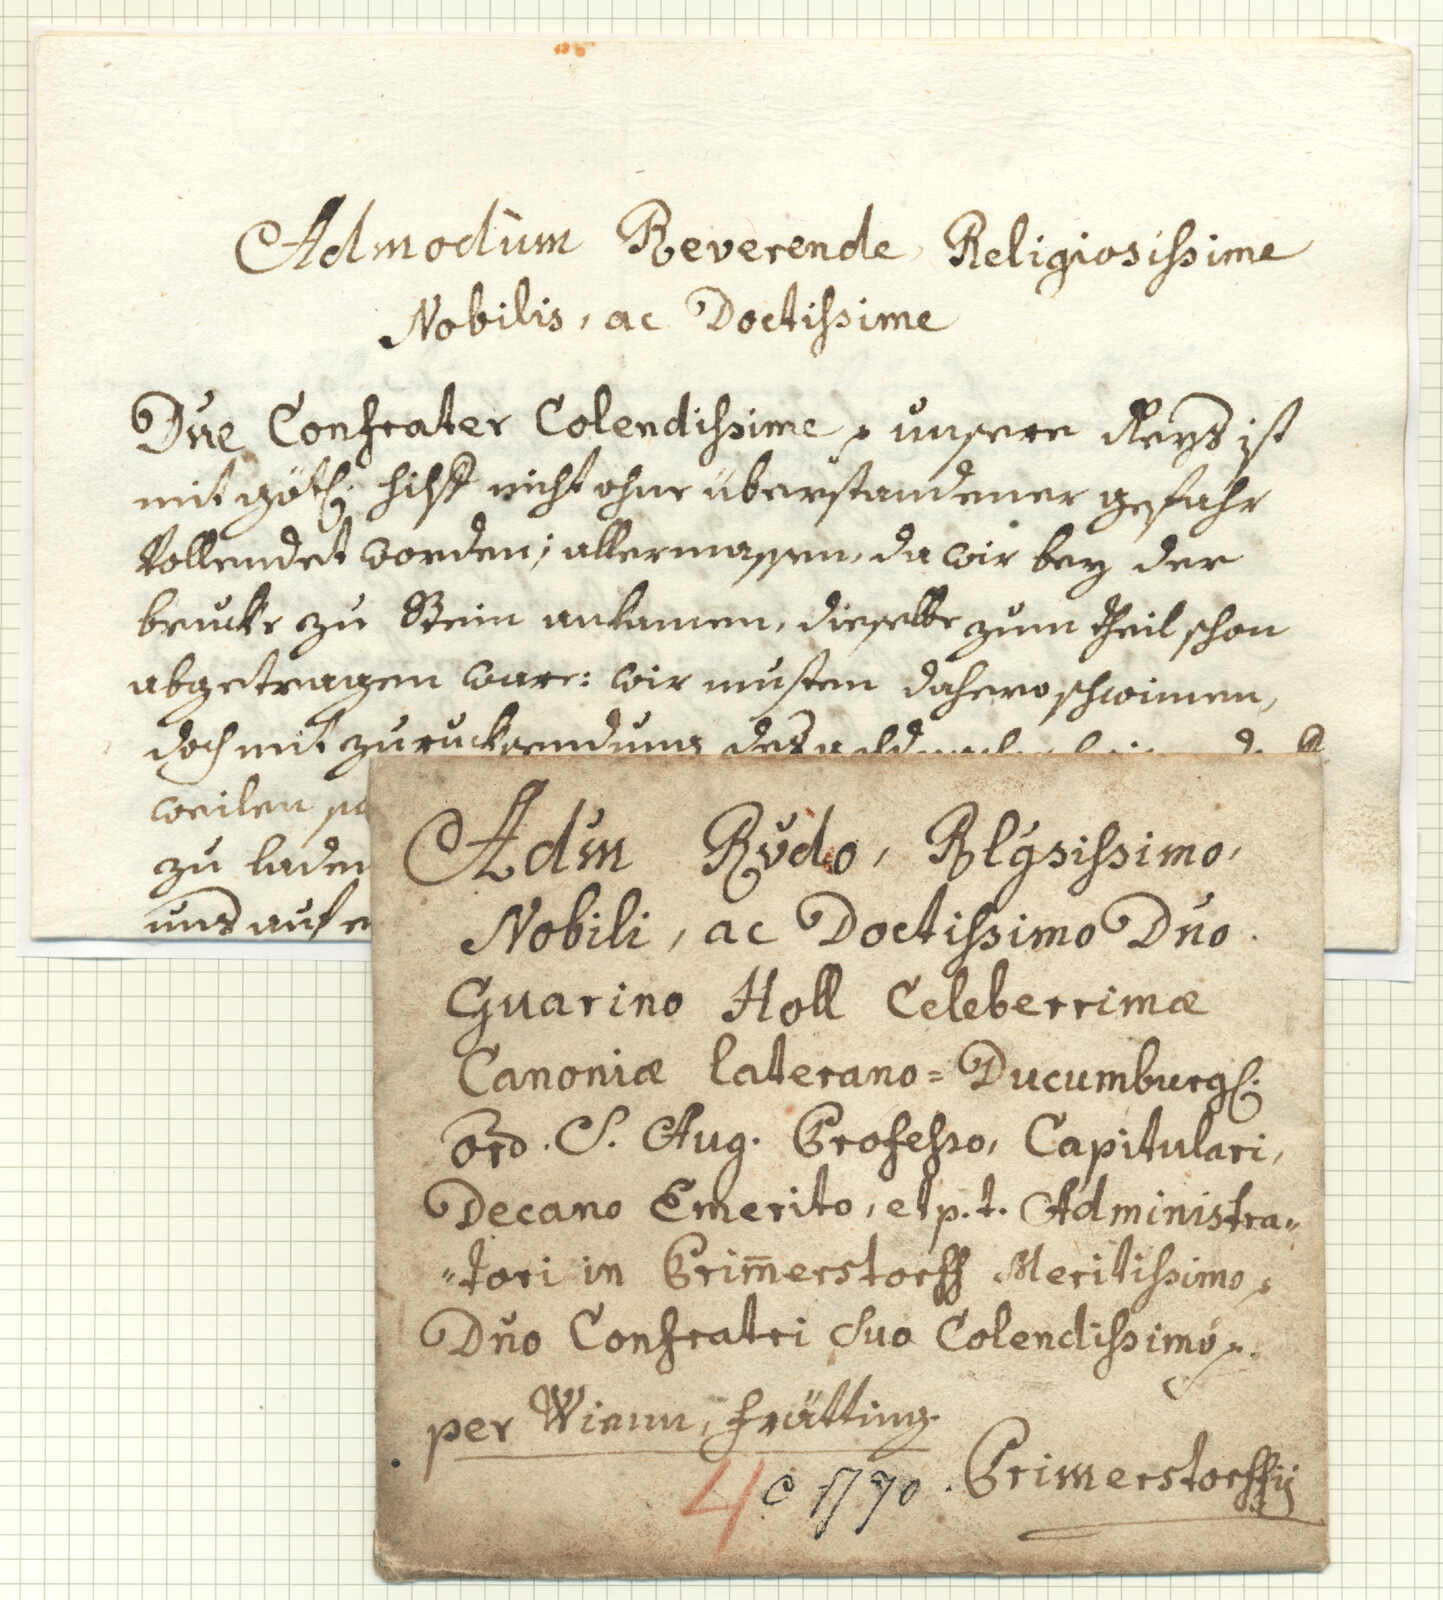 Admodùm Reverende Religiosissime
Nobilis, ac Doctissime
Dñe Confrater Colendissime, unsere Reys ist
mit gött. hilff nicht ohne überstandener gefahr
Vollendet worden; allermassen, da wir bey der
brucke zu Stein ankamen, dieselbe zum theil schon
abgetragen ware: wir musten dahero schwimen,
doch mit zurucksendung des
weilen
zu laden
uns auf
Adm̃ Rṽdo, Rlg̃sissimo,
Nobili, ac Doctissimo Dño
Guarino Holl Celeberrimæ
Canoniæ Laterano=Ducumburg.
Ord. S. Aug. Professo, Capitulari,
Decano Emerito, et p. t. Administra=
=tori in Grim̄erstorff Meritissimo,
Dño Confratri Suo Colendissimo
per Wienn, Frätting.
4 c 1770. Grimerstorffij